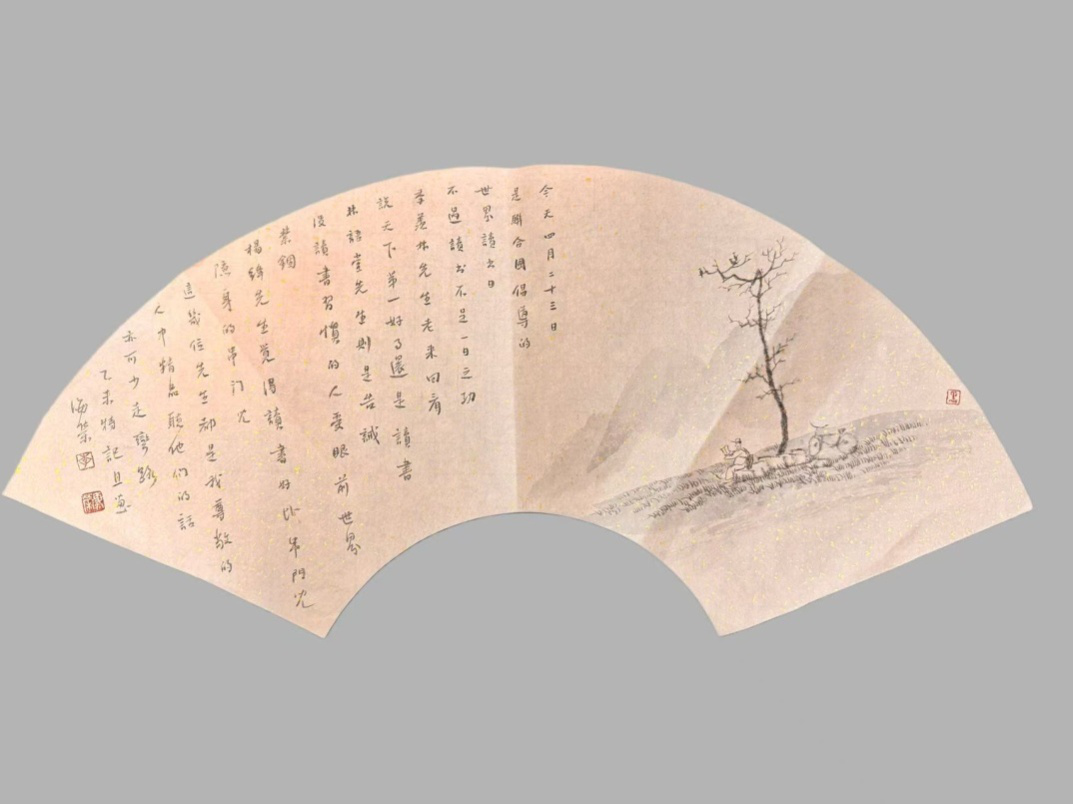 今天四月二十三日
是联合国倡导的
世界讀书日
不過讀书不是一日之功
季羡林先生老来回看
說天下第一好事還是讀書
林語堂先生則是告誡
没讀書習慣的人受眼前世界
禁錮
楊絳先生覺得讀書好比串門兒
隱身的串门兒
這幾位先生都是我尊敬的
人中精品聽他們的話
亦可少走彎路
乙未特記且畫
海榮